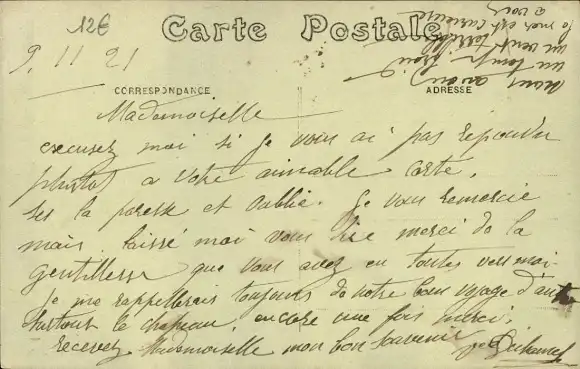 12€
Carte Postale
9. 11 21
CORRESPONDANCE
ADRESSE
nous avons
un temps froid
un vent terrible
la mer est furieuse
a voir
Mademoiselle
excusez moi si je vous ai pas repondu
plutot a votre aimable carte,
ses la paresse et oublie. je vous remercie
mais laissé moi vous dire merci de la
gentillesse que vous avez eu toutes vers moi
je me rappellerais toujours de notre bon voyage
surtout le chapeau, encore une fois merci,
recevez Mademoiselle mon bon souvenir